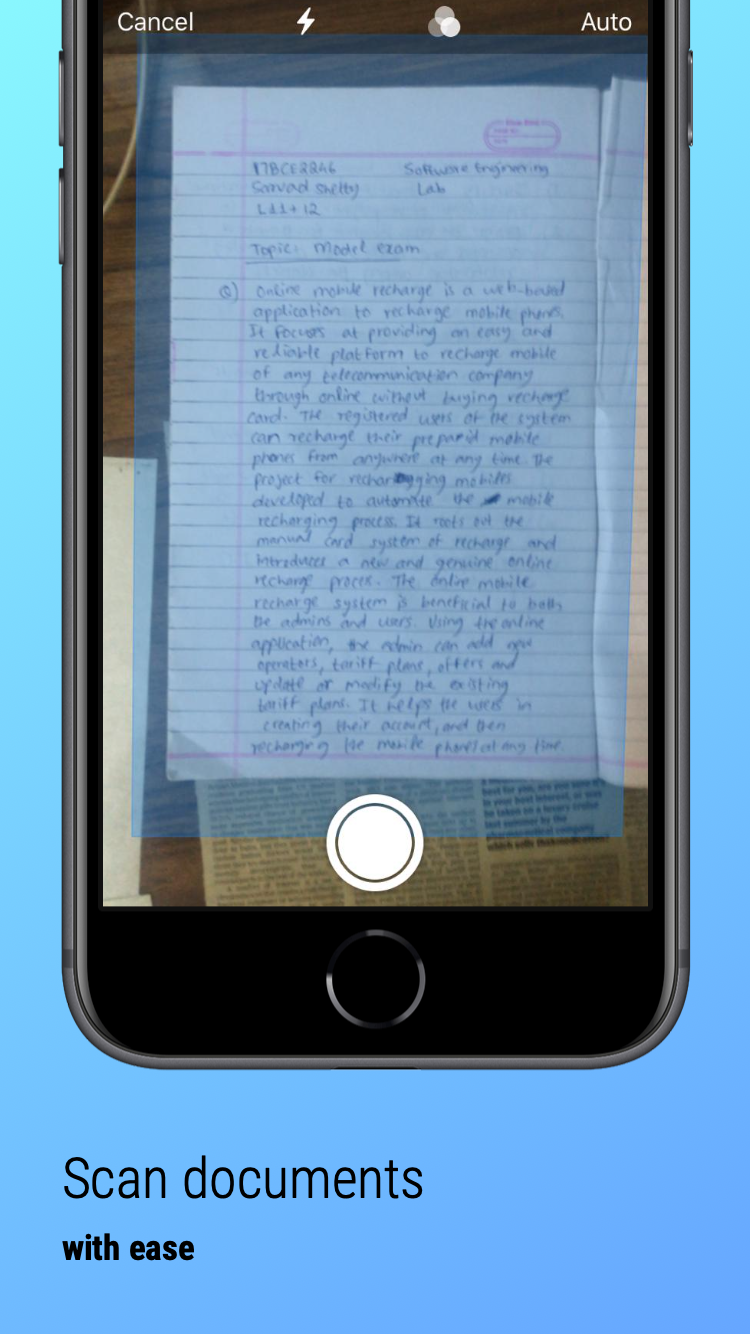 Cancel
Auto
17BCE2246 Software Engineering
Sarvad Shetty Lab
L11+12
Topic: Model exam
Q) Online mobile recharge is a web-based
application to recharge mobile phones.
It focuses at providing an easy and
reliable platform to recharge mobile
of any telecommunication company
through online without buying recharge
card. The registered users of the system
can recharge their prepaid mobile
phones from anywhere at any time. The
project for recharging mobiles
developed to automate the mobile
recharging process. It roots out the
manual card system of recharge and
introduces a new and genuine online
recharge process. The online mobile
recharge system is beneficial to both
the admins and users. Using the online
application, the admin can add new
operators, tariff plans, offers and
update or modify the existing
tariff plans. It helps the users in
creating their account, and then
recharging the mobile phone at any time.
best for you, are you
in your best interest, or was
be taken on a luxury cruise
last summer by the
pharmaceutical company
which sells
Scan documents
with ease